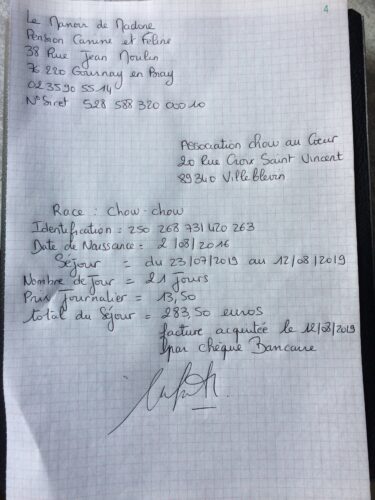 4
Le Manoir de Nadine
Pension Canine et Feline
38 Rue Jean Moulin
76 220 Gournay en Bray
0235905514
N° Siret 528 588 320 000 10
Association chow au Cœur
20 Rue Croix Saint Vincent
89340 Villeblevin
Race : Chow-chow
Identification : 250 268 731 420 263
Date de Naissance : 2/08/2016
Séjour = du 23/07/2019 au 12/08/2019
Nombre de jour = 21 jours
Prix Journalier = 13,50
total du Séjour = 283,50 euros
facture acquitée le 12/08/2019
par chèque Bancaire